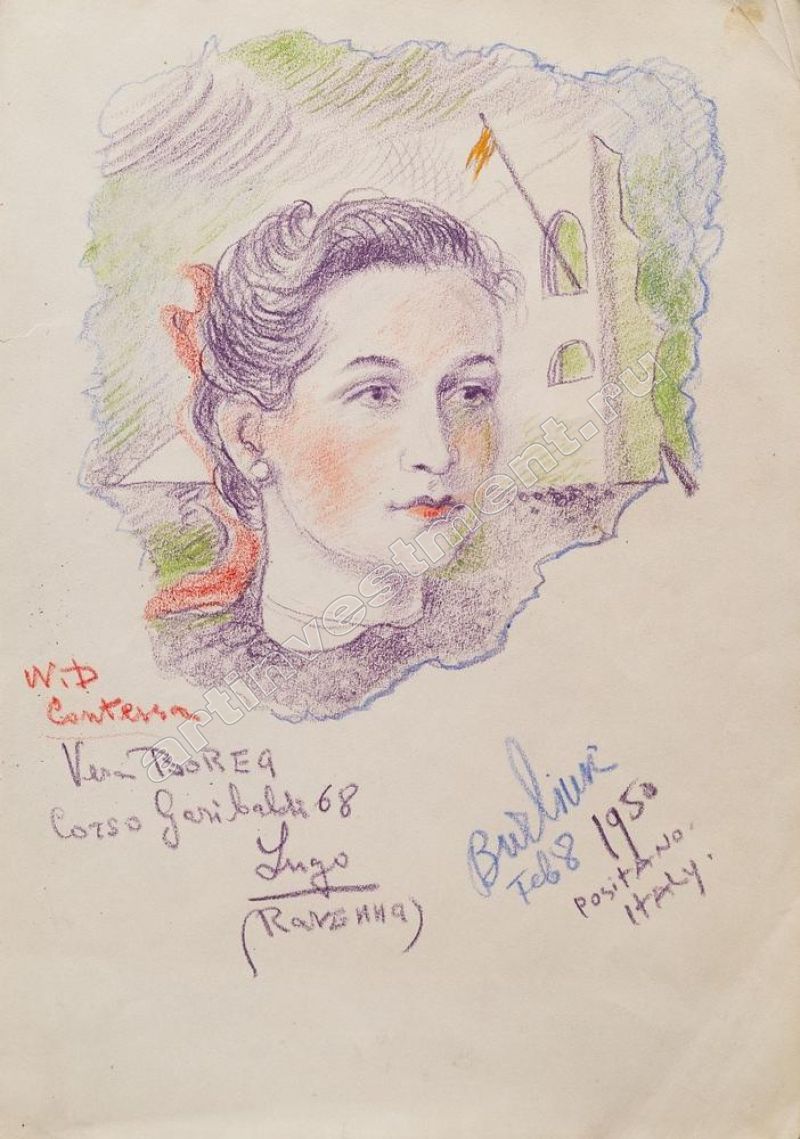 W.D
Contessa
Vera
Corso Garibaldi 68
Lugo
(Ravenna)
Burliuk
Feb 8 1950
Positano.
Italy.
artinvestment.ru